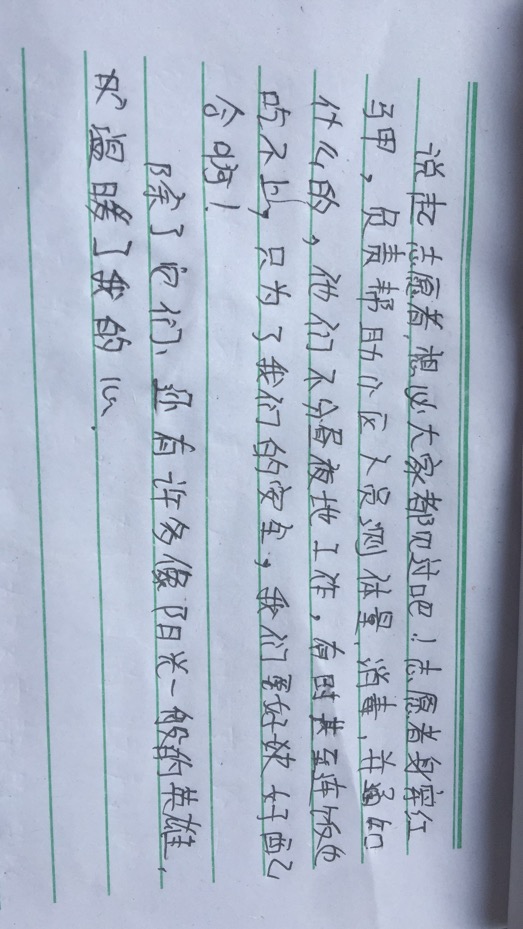 说起志愿者,想必大家都见过吧!志愿者身穿红
马甲,负责帮助小区人员测体量,消毒,并通知
什么的,他们不分昼夜地工作,有时甚至连饭也
吃不上,只为了我们的安全,我们要好
合啊!
除了它们、还有许多像阳光一般的英雄,
温暖了我的心.